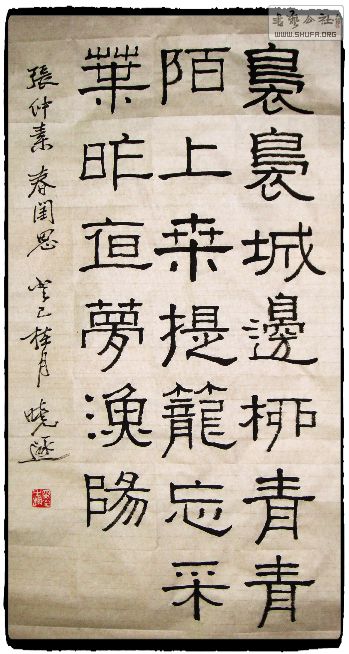 裊裊城邊柳青青
陌上桒提籠忘采
葉昨亱夢漁陽
張仲素 春閨思 癸巳桂月 曉
书艺公社
WWW.SHUFA.ORG